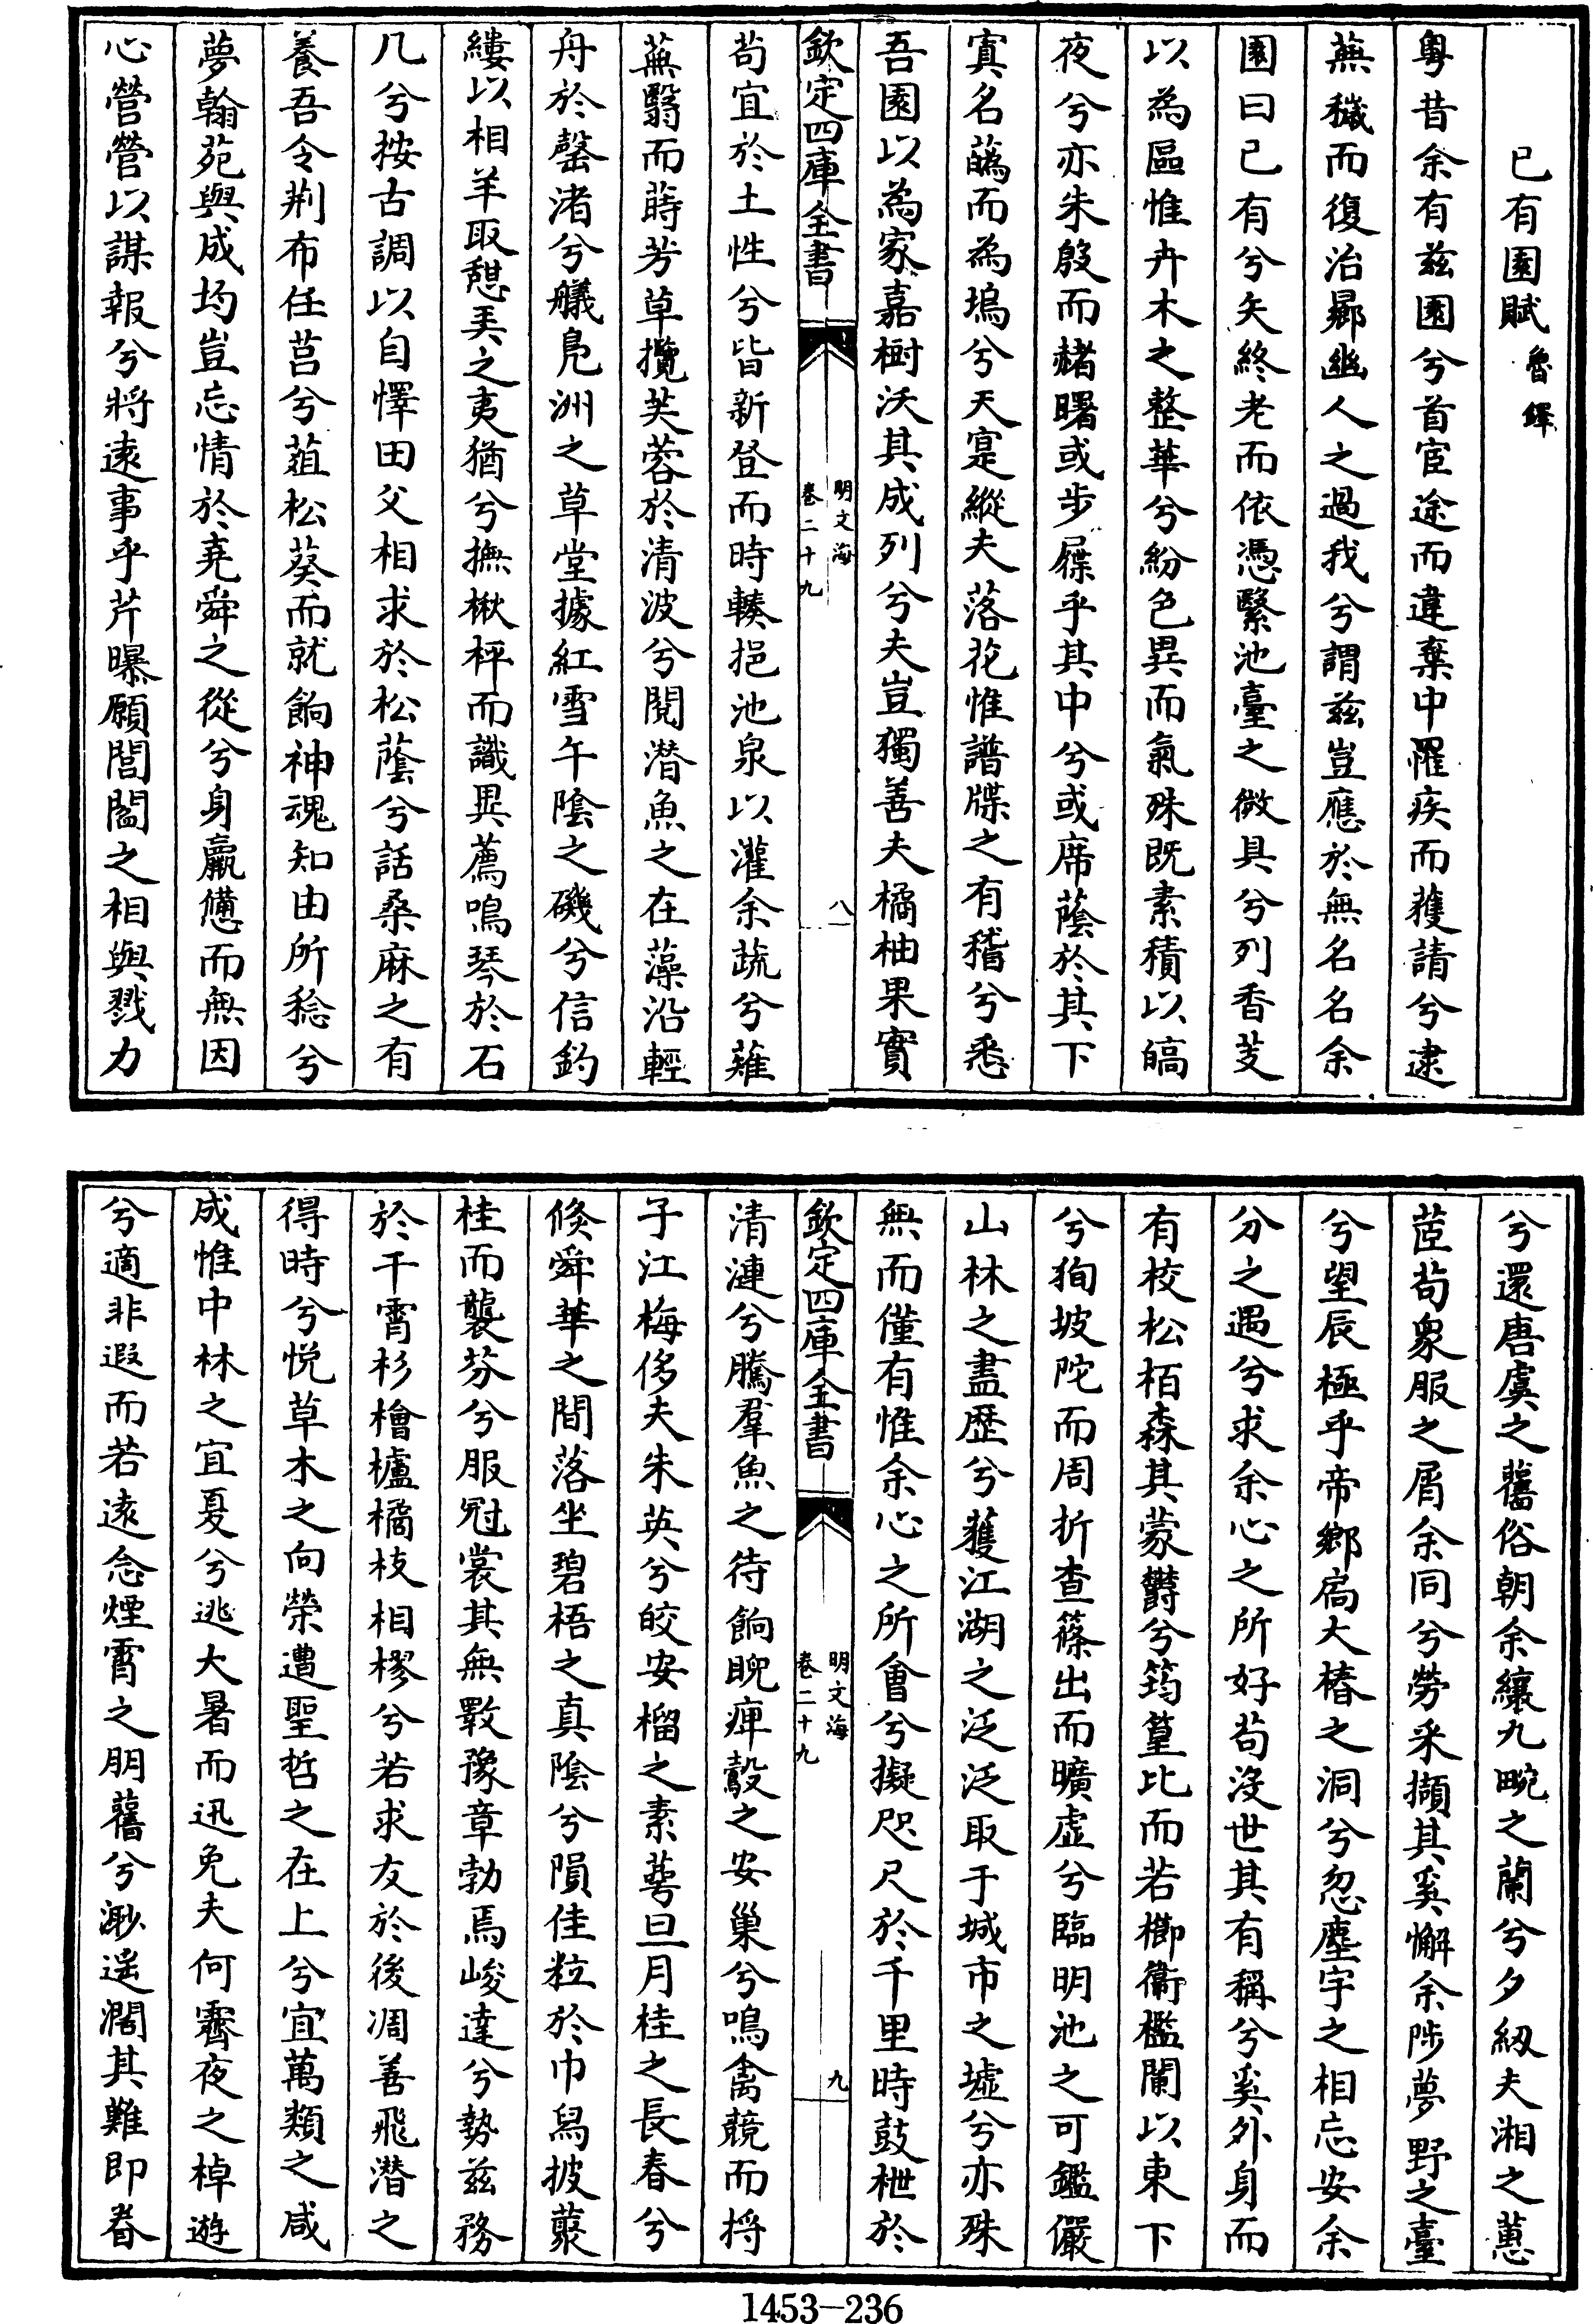 已有園賦 魯鐸
粤昔余有兹園兮首宦途而違棄中罹疾而獲請兮逮
蕪穢而復治曏幽人之過我兮謂兹豈應於無名名余
園曰已有兮矢終老而依憑繄池臺之微具兮列香芰
以為區惟卉木之整華兮紛色異而氣殊既素積以皜
夜兮亦朱殷而赭曙或步屧乎其中兮或席蔭於其下
寘名蘤而為塢兮天寔縱夫落花惟譜牒之有稽兮悉
吾園以為家嘉樹沃其成列兮夫豈獨善夫橘柚果實
欽定四庫全書 明文海 卷二十九 八
苟宜於土性兮皆新登而時輳挹池泉以灌余蔬兮薙
蕪翳而蒔芳草攬芙蓉於清波兮閱潜魚之在藻沿輕
舟於罄渚兮艤鳧洲之草堂據紅雪午陰之磯兮信釣
縷以相羊取憇美之夷猶兮撫楸枰而識異薦鳴琴於石
几兮按古調以自懌田父相求於松蔭兮話桑麻之有
養吾令荆布任莒兮菹松葵而就餉神魂知由所稔兮
夢翰苑與成均豈忘情於堯舜之從兮身羸憊而無因
心營營以謀報兮將遠事乎芹曝願閭閻之相與戮力
兮還唐虞之舊俗朝余纕九畹之蘭兮夕紉夫湘之蕙
茝苟衆服之屑余同兮勞采擷其奚懈余陟夢野之臺
兮望辰極乎帝鄉扄大椿之洞兮忽塵宇之相忘安余
分之遇兮求余心之所好苟沒世其有稱兮奚外身而
有校松栢森其蒙欝兮筠篁比而若櫛衞檻闌以東下
兮狥坡陀而周折查篠出而曠虚兮臨明池之可鑑儼
山林之盡歴兮獲江湖之泛泛取于城市之墟兮亦殊
無而僅有惟余心之所會兮擬咫尺於千里時鼓枻於
欽定四庫全書 明文海 卷二十九 九
清漣兮騰羣魚之待餉睨㾏鷇之安巢兮鳴禽競而捋
子江梅侈夫朱英兮皎安榴之素萼旦月桂之長春兮
倐舜華之間落坐碧梧之真陰兮隕佳粒於巾舃披叢
桂而襲芬兮服冠裳其無斁豫章勃焉峻達兮勢兹務
於干霄杉檜櫨橘枝相樛兮若求友於後凋善飛潜之
得時兮悦草木之向榮遭聖哲之在上兮宜萬類之咸
成惟中林之宜夏兮逃大暑而迅免夫何霽夜之棹遊
兮適非遐而若遠念煙霄之朋舊兮渺遥濶其難即眷
1453-236